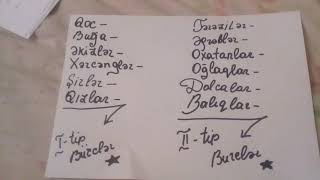 Qoç -
Buğa -
Əkizlər -
Xərcənglər -
Şirlər -
Qızlar -
I - tip
Bürclər
Tərəzilər -
Əqrəblər -
Oxatanlar -
Oğlaqlar -
Dolcalar -
Balıqlar -
II - tip
Bürclər